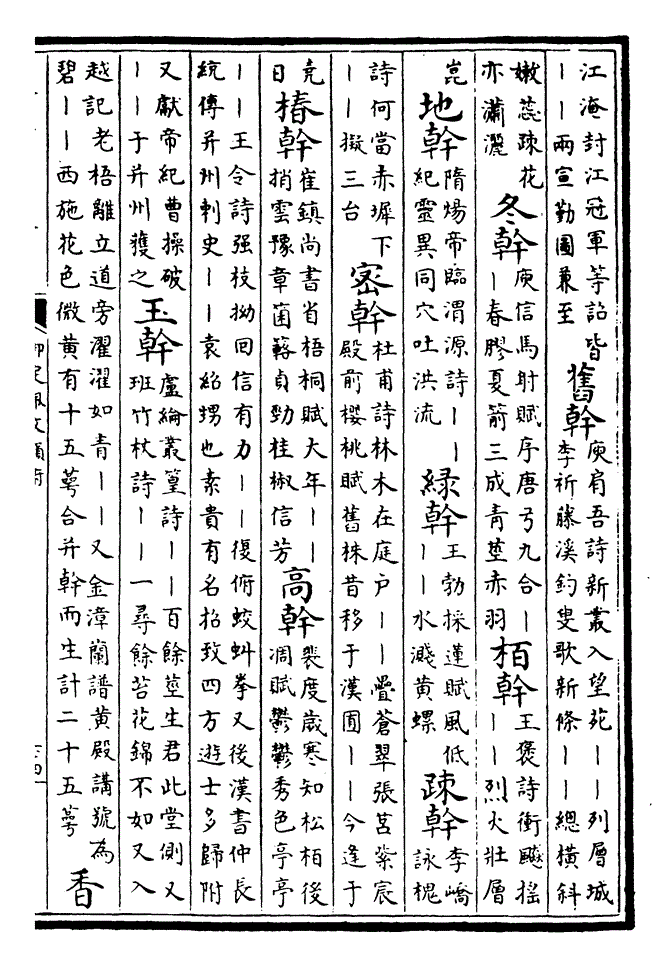 江淹封江冠軍等詔皆
——兩宣勤圖兼至
舊幹
庾肩吾詩新叢入望苑——列層城
李祈滕溪釣叟歌新條——總橫斜
嫩蕊疎花
亦瀟灑
冬幹
庾信馬射賦序唐弓九合—
—春膠夏箭三成青莖赤羽
栢幹
王褒詩衝飇揺
——烈火壯層
崑
地幹
隋煬帝臨渭源詩——
紀靈異同穴吐洪流
緑幹
王勃採蓮賦風低
——水濺黄螺
疎幹
李嶠
詠槐
詩何當赤墀下
——擬三台
密幹
杜甫詩林木在庭户——疊蒼翠張莒紫宸
殿前櫻桃賦舊株昔移于漢囿——今逢于
尭
日
椿幹
崔鎮尚書省梧桐賦大年——
捎雲豫章箘簬貞勁桂椒信芳
高幹
裴度歲寒知松栢後
凋賦鬱鬱秀色亭亭
——王令詩强枝拗回信有力——復俯蛟虯拳又後漢書仲長
統傳并州刺史——袁紹甥也素貴有名招致四方遊士多歸附
又獻帝紀曹操破
——于并州獲之
玉幹
盧綸叢篁詩——百餘莖生君此堂側又
班竹杖詩——一尋餘苔花錦不如又入
越記老梧離立道旁濯濯如青——又金漳蘭譜黄殿講號為
碧——西施花色微黄有十五蕚合并幹而生計二十五蕚
香